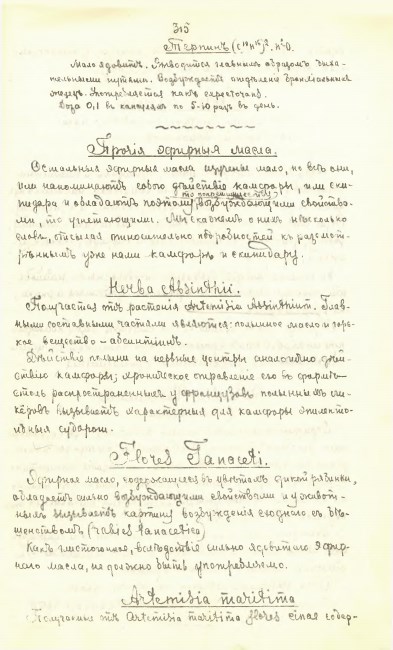 315
Терпинъ (C¹⁰H¹⁶)². H²O.
Мало ядовитъ. Выводится главнымъ образомъ дыха-
тельными путями. Возбуждаетъ отдѣленіе бронхіальныхъ
желѣзъ. Употребляется какъ expectorans.
Доза 0,1 въ капсуляхъ по 5-10 разъ въ день.
Прочія эфирныя масла.
Остальныя эфирныя масла изучены мало, но всѣ они,
или напоминаютъ собою дѣйствіе камфоры, или ски-
пидара и обладаютъ поэтому то возбуждающими свойства-
ми, то угнетающими. Мы скажемъ о нихъ нѣсколько
словъ, отсылая относительно подробностей къ разсмот-
рѣннымъ уже нами камфорѣ и скипидару.
Herba Absinthii.
Получается отъ растенія Artemisia Absinthium. Глав-
ными составными частями являются: полынное масло и горь-
кое вещество — абсинтинъ.
Дѣйствіе полыни на нервные центры аналогично дѣй-
ствію камфоры; хроническое отравленіе ею въ формѣ
столь распространенныхъ у французовъ полынныхъ ли-
керовъ вызываетъ характерныя для камфоры эпилепто-
идныя судороги.
Flores Tanaceti.
Эфирное масло, содержащееся въ цвѣтахъ дикой рябинки,
обладаетъ сильно возбуждающими свойствами и у живот-
ныхъ вызываетъ картину возбужденія сходнаго съ бѣ-
шенствомъ (rabies tanacetica)
Какъ глистогонное, вслѣдствіе сильно ядовитаго эфир-
наго масла, не должно быть употребляемо.
Artemisia maritima
Получаемые отъ Artemisia maritima flores cinae содер-